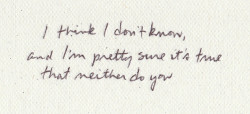 I think I don't know,
and I'm pretty sure it's true
that neither do you